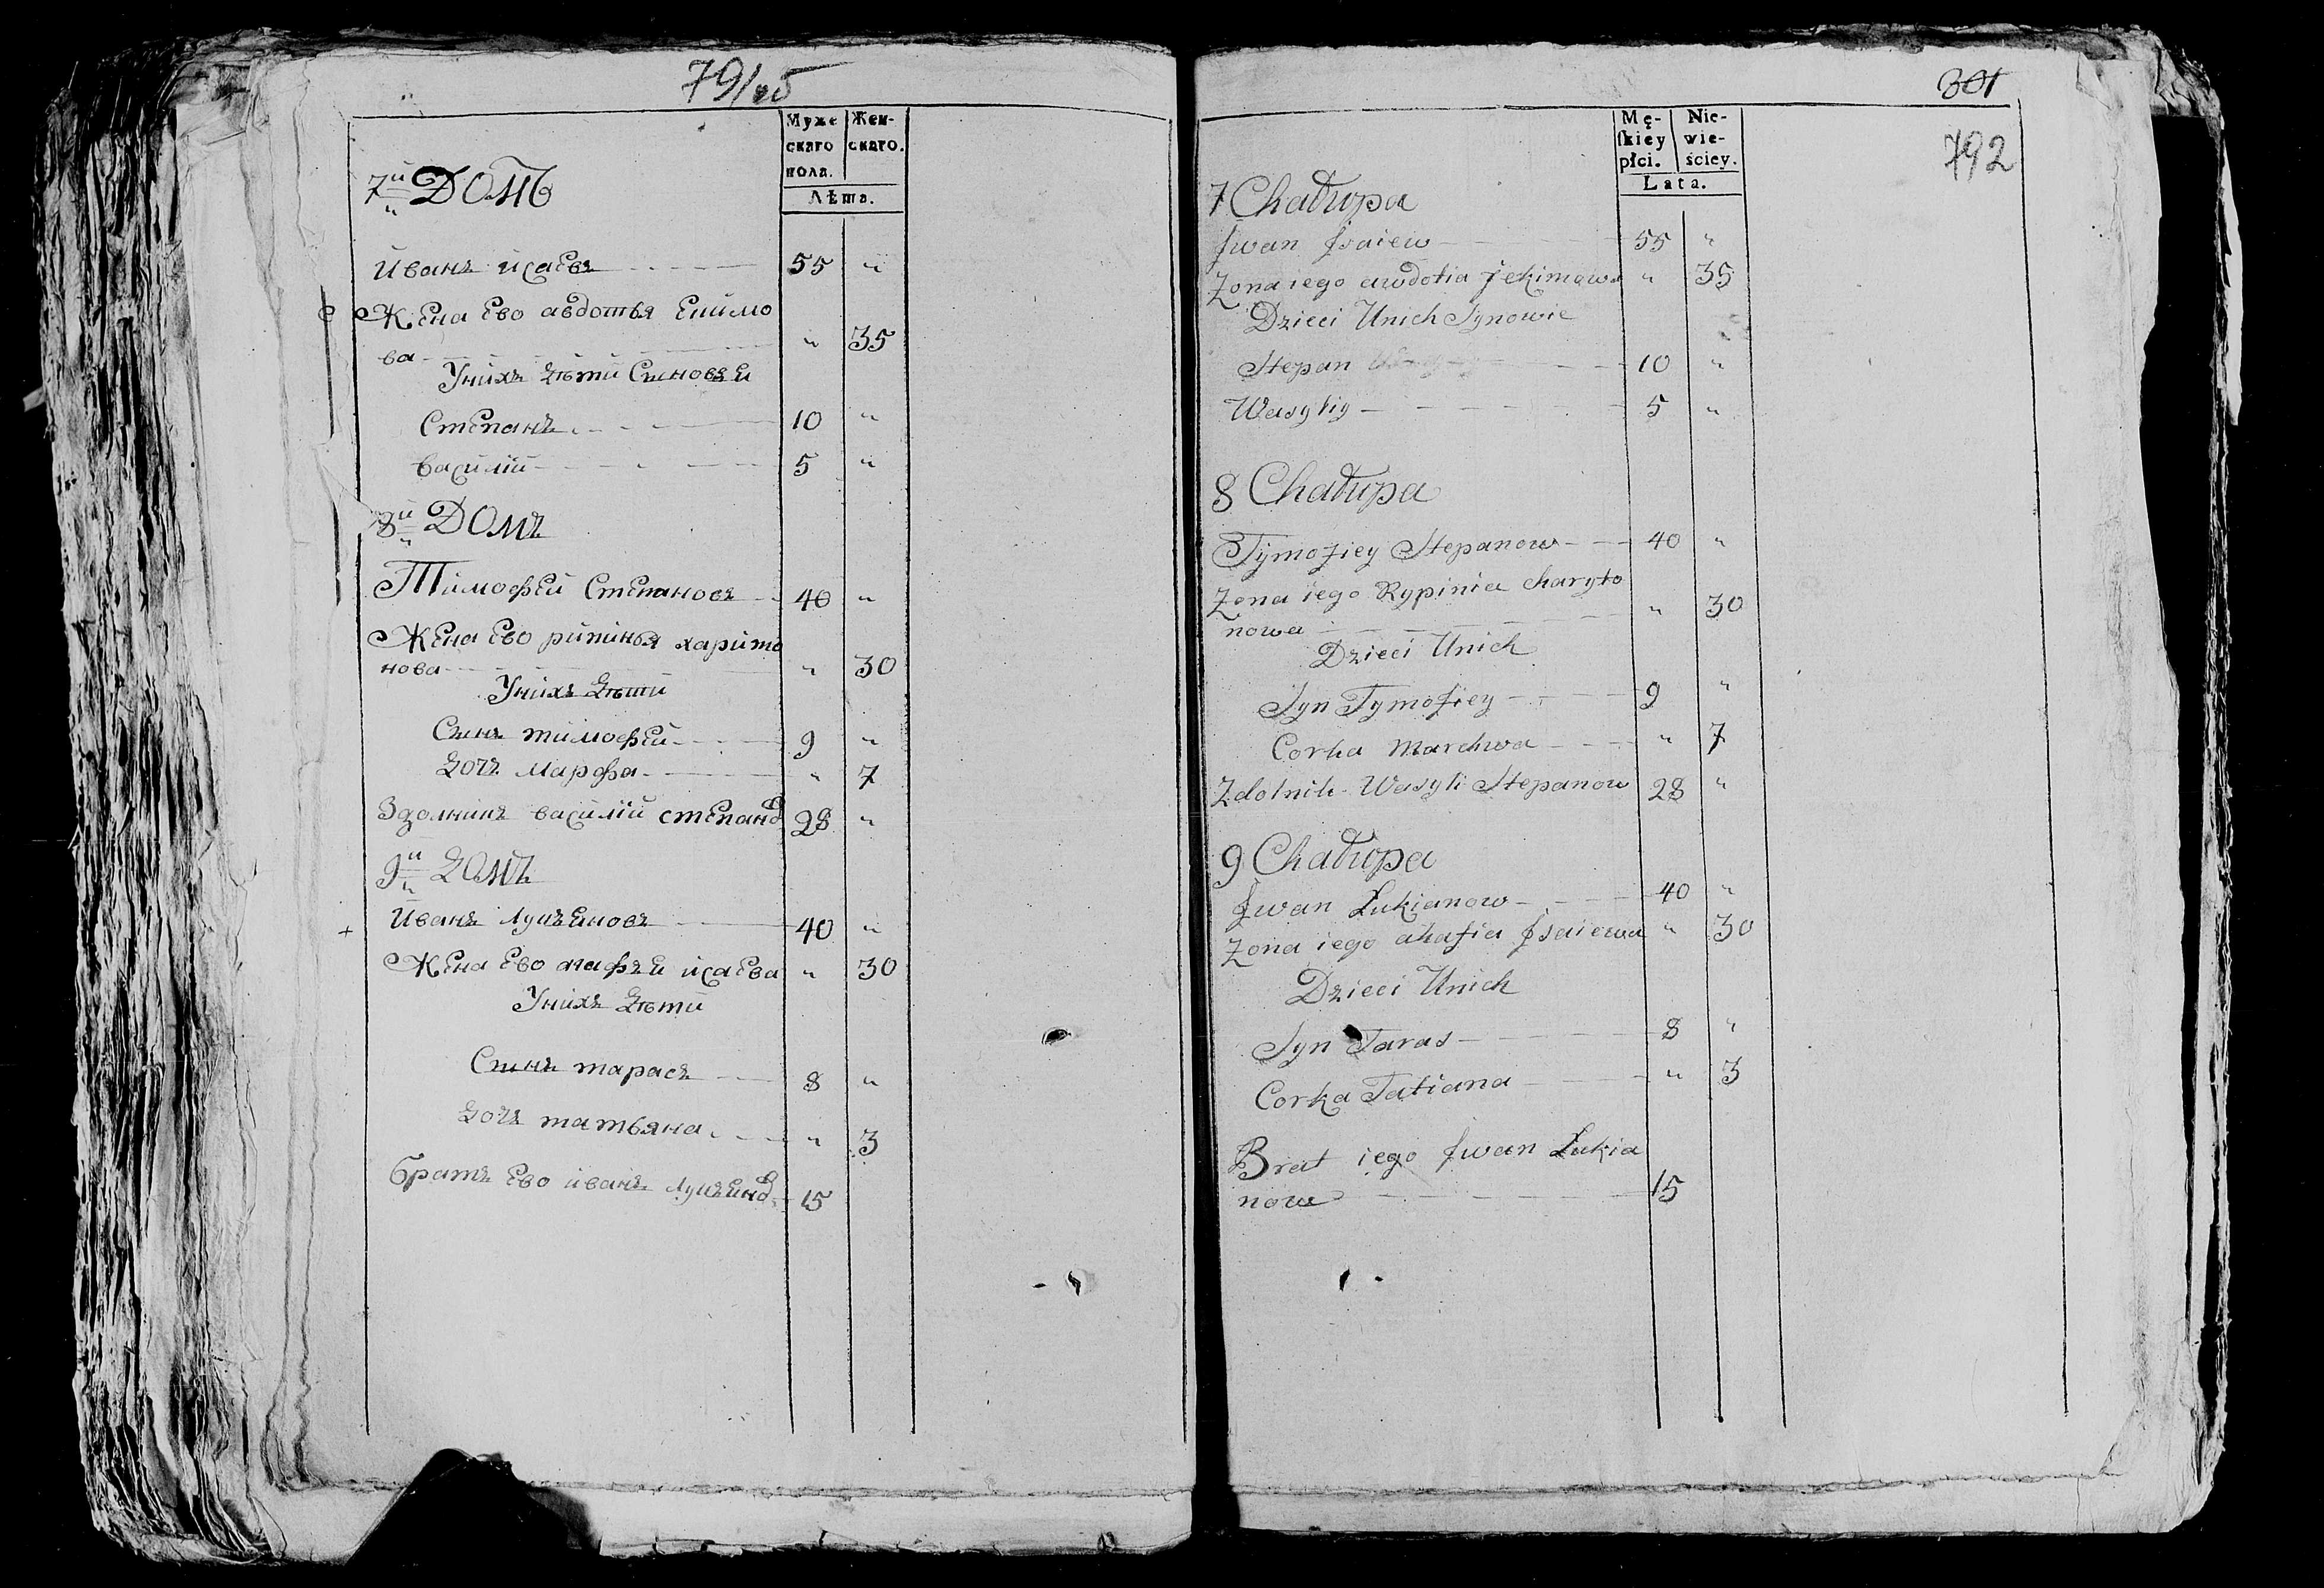 79/об
Муже
скаго
пола.
Жен-
скаго.
Лѣта.
7й ДОМЪ
Иванъ исаевъ 55 "
Жена ево авдотья екимо
ва " 35
У нихъ дѣти Сыновей
Степанъ 10 "
Василий 5 "
8й ДОмъ
Тимофей Степановъ 40 "
Жена ево рипинья харито
нова " 30
У нихъ дѣти
Сынъ тимофей 9 "
дочъ Марфа " 7
Здолникъ василий степанов 28 "
9й дОмъ
Иванъ Лукъяновъ 40 "
Жена ево агафъи исаева " 30
У нихъ дѣти
Сынъ тарасъ 8 "
дочъ татьяна " 3
братъ ево иванъ лукъянов 15
301
792
Mę-
skiey
płci.
Nie-
wie-
ściey.
Lata.
7 Chałupa
Jwan Jsaiew 55 "
Zona iego awdotia Jekimowa " 35
Dzieci Unich Synowie
Stepan 10 "
Wasyliy 5 "
8 Chałupa
Tymofiey Stepanow 40 "
Zona iego Rypinia charyto
nowa " 30
Dzieci Unich
Syn Tymofiey 9 "
Corka Marchwa " 7
Zdolnik Wasyli Stepanow 28 "
9 Chałupa
Jwan Łukianow 40 "
Zona iego ahafia Jsaiewa " 30
Dzieci Unich
Syn Taras 8 "
Corka Tatiana " 3
Brat iego Jwan Łukia
now 15